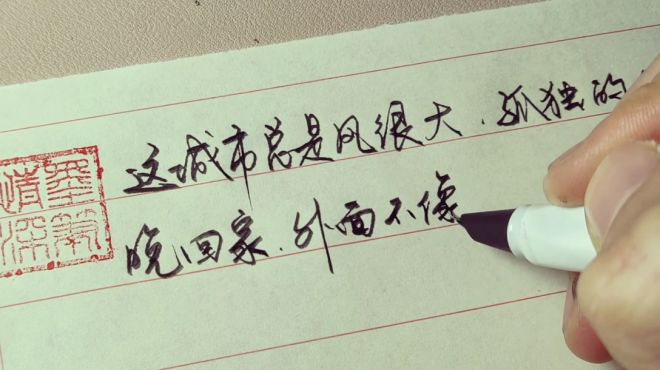 这城市总是风很大.孤独的
晚回家.外面不像
墨
情深